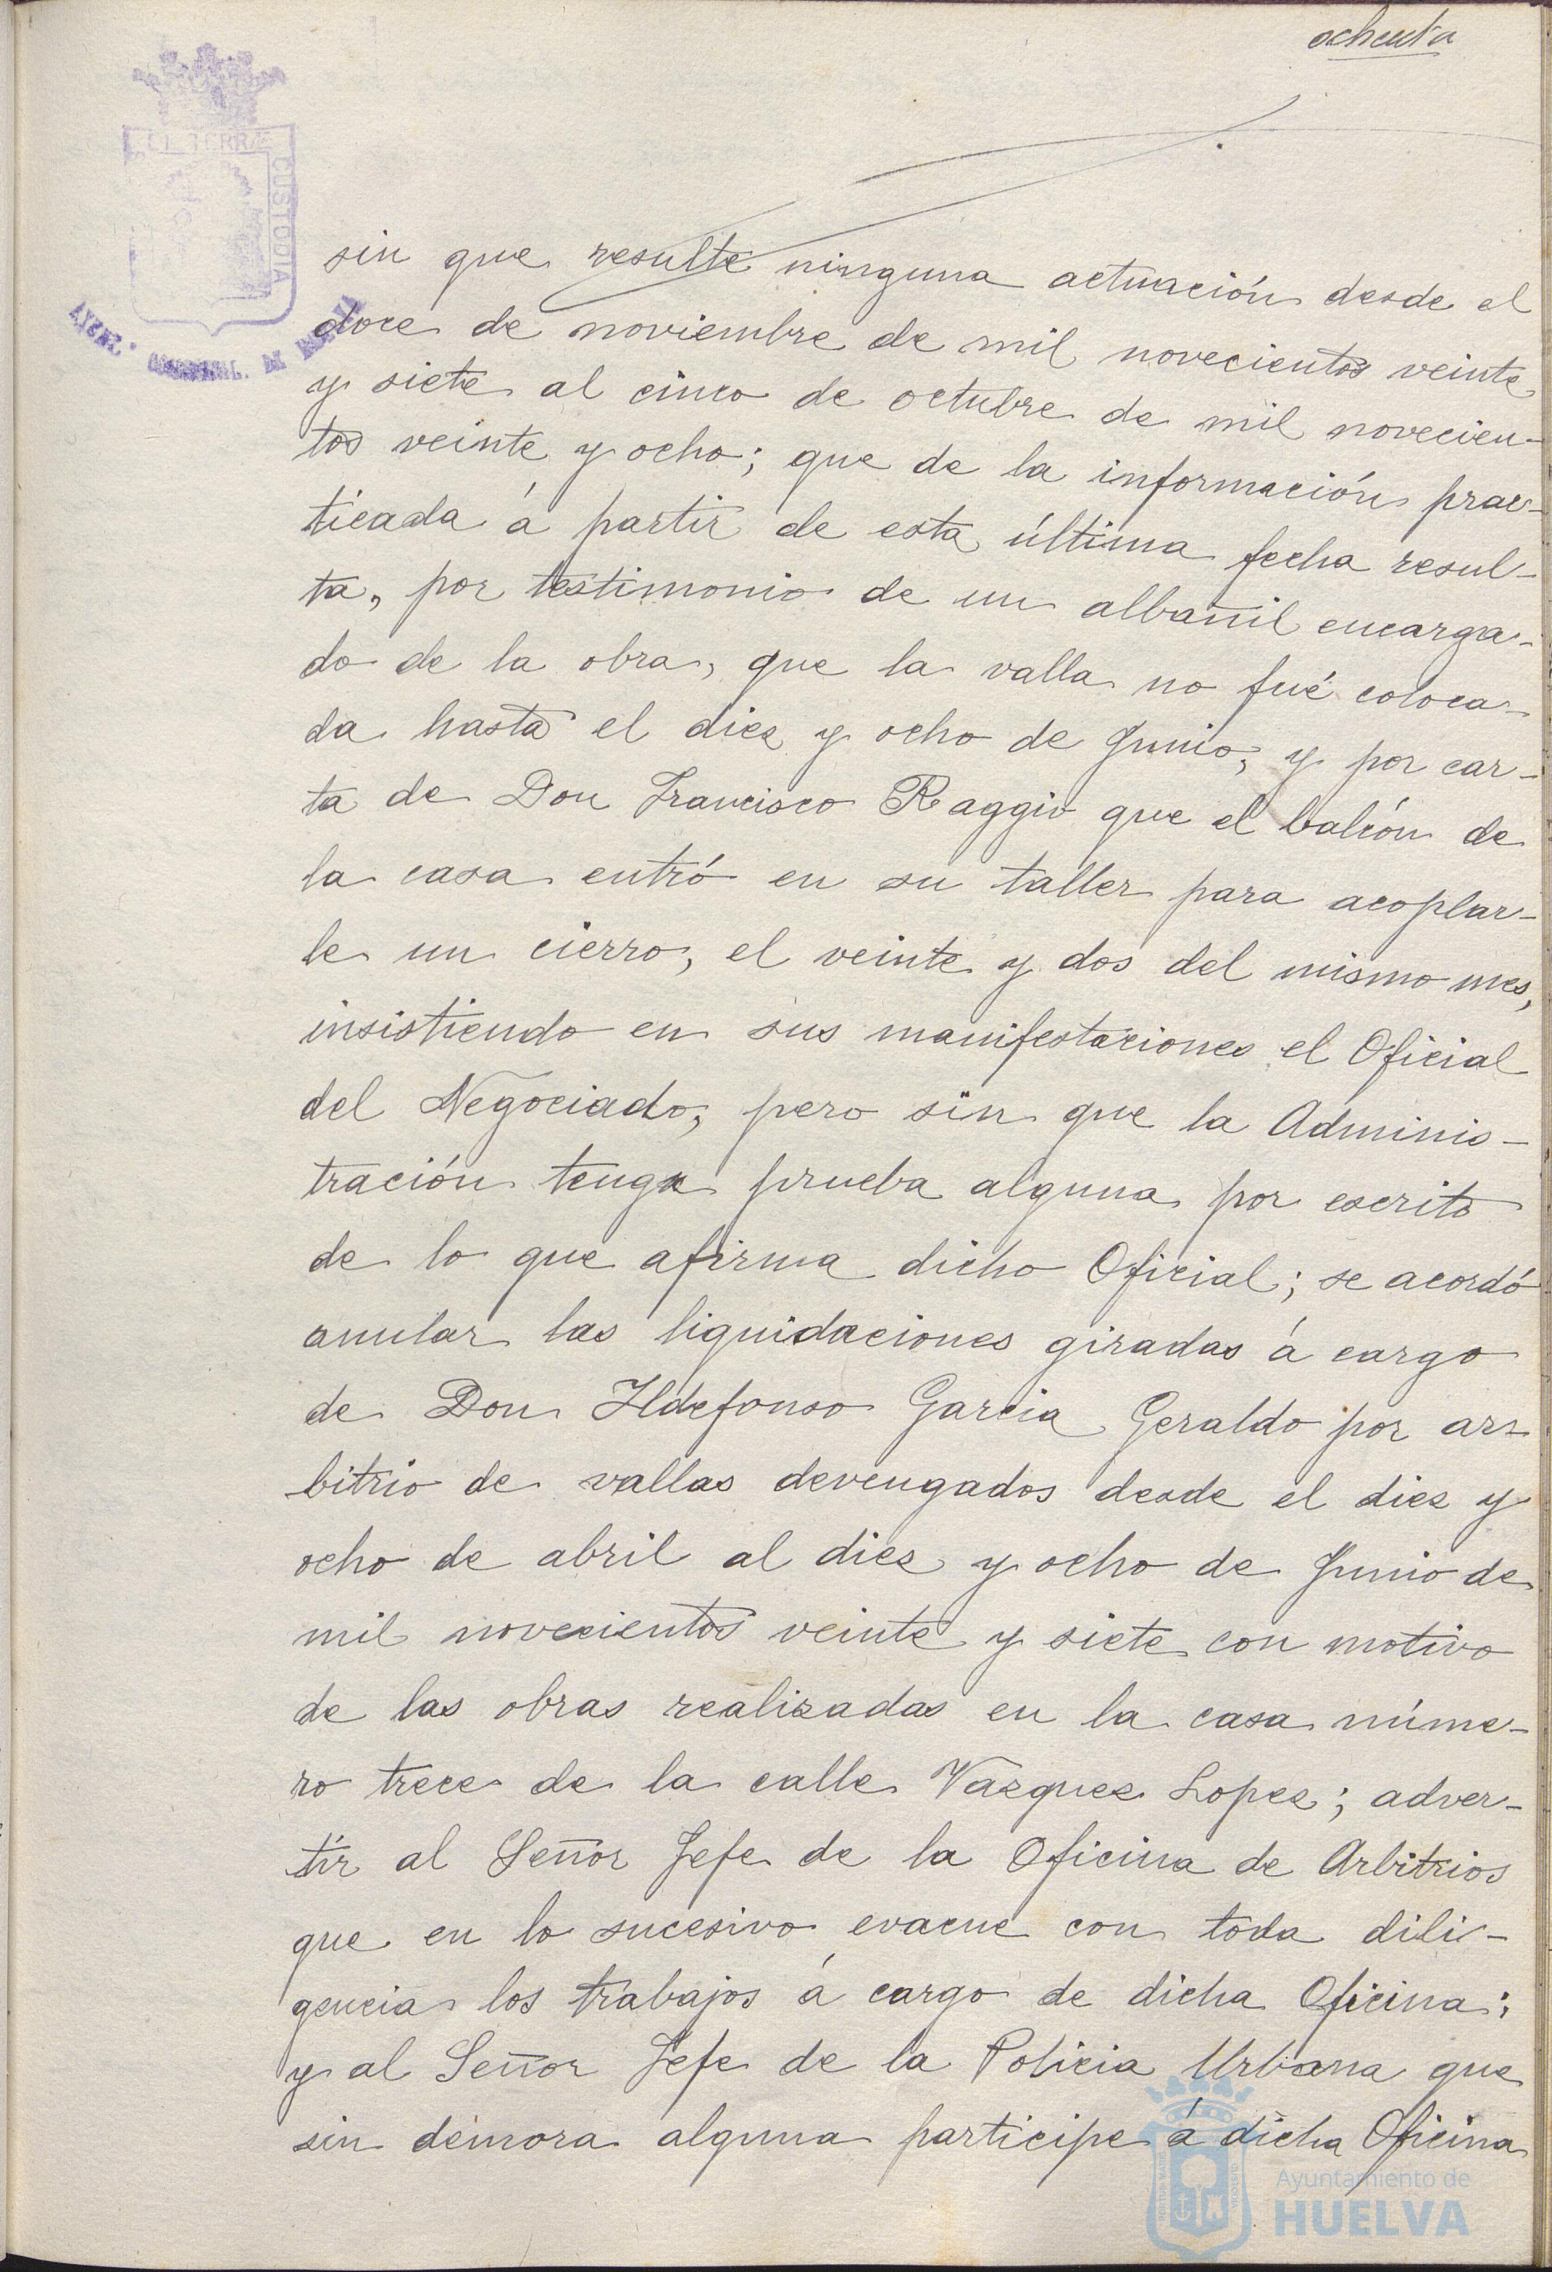 ochenta
ET TERRÆ
CUSTODIA
sin que resulte ninguna actuación desde el
doce de noviembre de mil novecientos veinte
y siete al cinco de octubre de mil novecien-
tos veinte y ocho; que de la información prac-
ticada á partir de esta última fecha resul-
ta, por testimonio de un albañil encarga-
do de la obra, que la valla no fué coloca-
da hasta el diez y ocho de Junio, y por car-
ta de Don Francisco Raggio que el balcón de
la casa entró en su taller para acoplar-
le un cierro, el veinte y dos del mismo mes,
insistiendo en sus manifestaciones el Oficial
del Negociado, pero sin que la Adminis-
tración tenga prueba alguna por escrito
de lo que afirma dicho Oficial; se acordó
anular las liquidaciones giradas á cargo
de Don Ildefonso Garcia Geraldo por ar-
bitrio de vallas devengados desde el diez y
ocho de abril al diez y ocho de Junio de
mil novecientos veinte y siete con motivo
de las obras realizadas en la casa núme-
ro trece de la calle Vazquez Lopez; adver-
tir al Señor Jefe de la Oficina de Arbitrios
que en lo sucesivo evacue con toda dili-
gencia los trabajos á cargo de dicha Oficina;
y al Señor Jefe de la Policia Urbana que
sin demora alguna participe á dicha Oficina
Ayuntamiento de
HUELVA